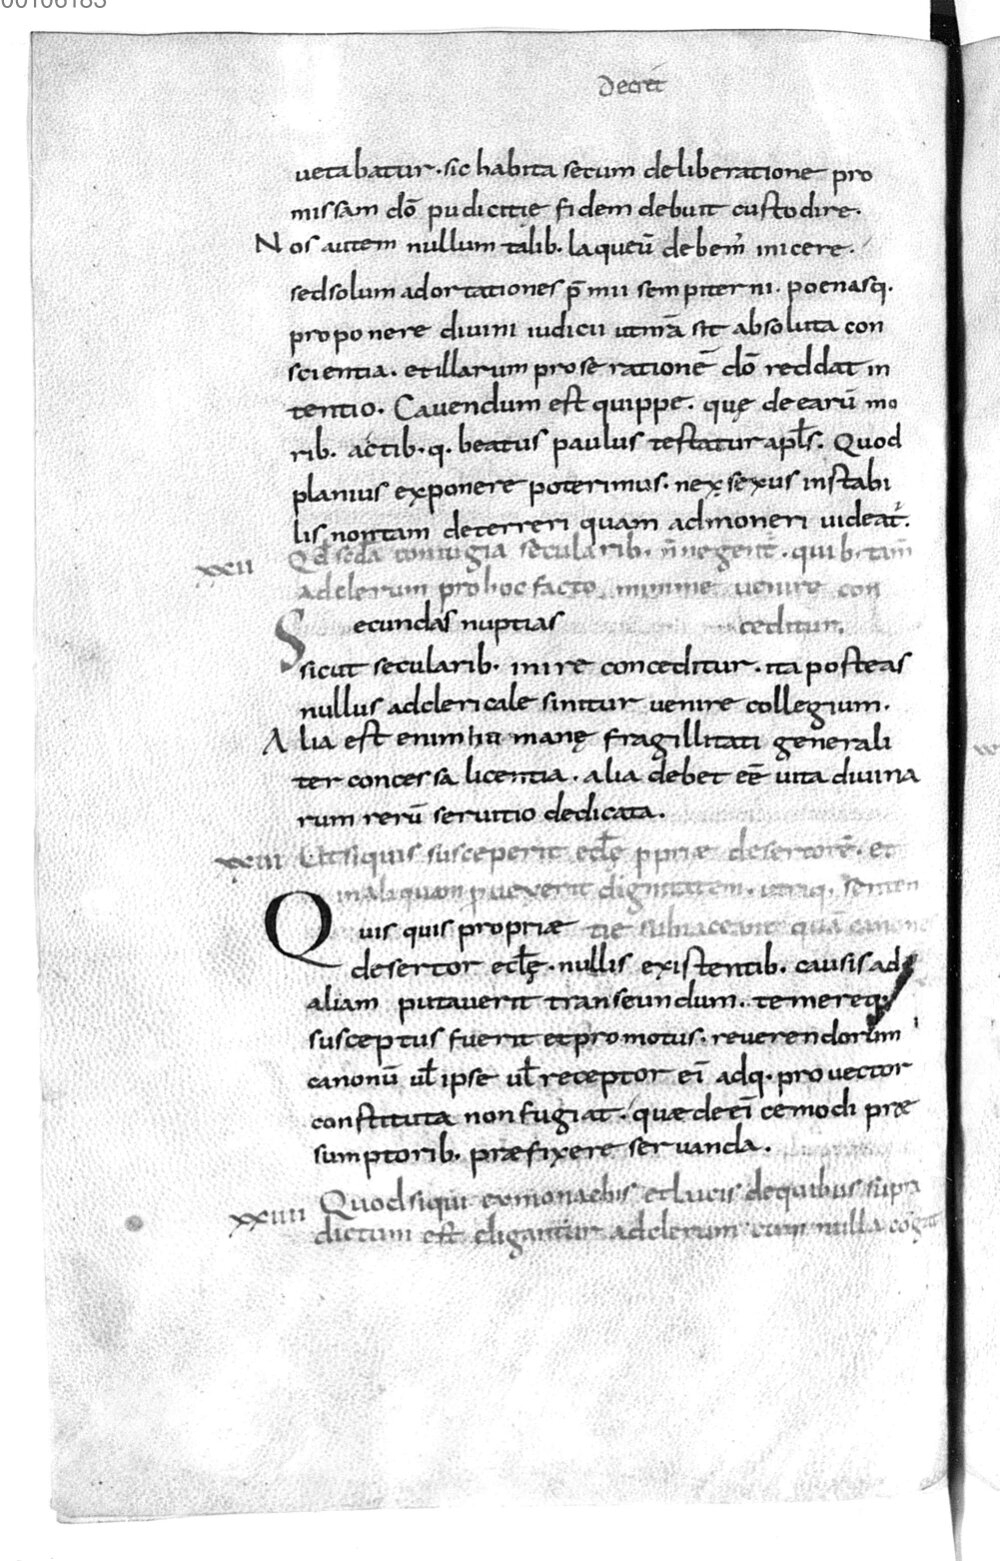 00106183
Decret
uetabatur. sic habita secum deliberatione pro
missam dō pudicitię fidem debuit custodire.
Nos autem nullum talib. laqueū debem᷒ inicere.
sed solum adortationes p̄mii sempiterni. poenasq.
proponere diuini iudicii ut nr̄a sit absoluta con
scientia. et illarum pro se rationē dō reddat in
tentio. Cauendum est quippe. quę de earū mo
rib. actib. q. beatus paulus testatur apl̄s. Quod
planius exponere poterimus. nęx sexus instabi
lis non tam deterreri quam admoneri uideat᷒.
xxii Qd̄ seda coniugia secularib. n̄ negent᷒. quib. tam̄
ad clerum pro hoc facto minime uenire con
Secundas nuptias ceditur.
sicut secularib. inire conceditur. ita post eas
nullus ad clericale sinitur uenire collegium.
Alia est enim humanę fragillitati generali
ter concessa licentia. alia debet eē uita diuina
rum rerū seruitio dedicata.
xxiii Ut si quis susceperit ecl̄ę ppriæ desertorē. et
in aliquam puexerit dignitatem. utriq. senten
Quis quis propriæ tię subiaceant quā canone
desertor ecl̄ę. nullis existentib. causis ad
aliam putauerit transeundum. temereq.
susceptus fuerit et promotus. reuerendorum
canonū ul̄ ipse ul̄ receptor ei᷒ adq. prouector
constituta non fugiat. quæ de ei᷒cemodi præ
sumptorib. præfixere seruanda.
xxiiii Quod si qui ex monachis et laicis de quibus supra
dictum est eligantur ad clerum cum nulla cogat